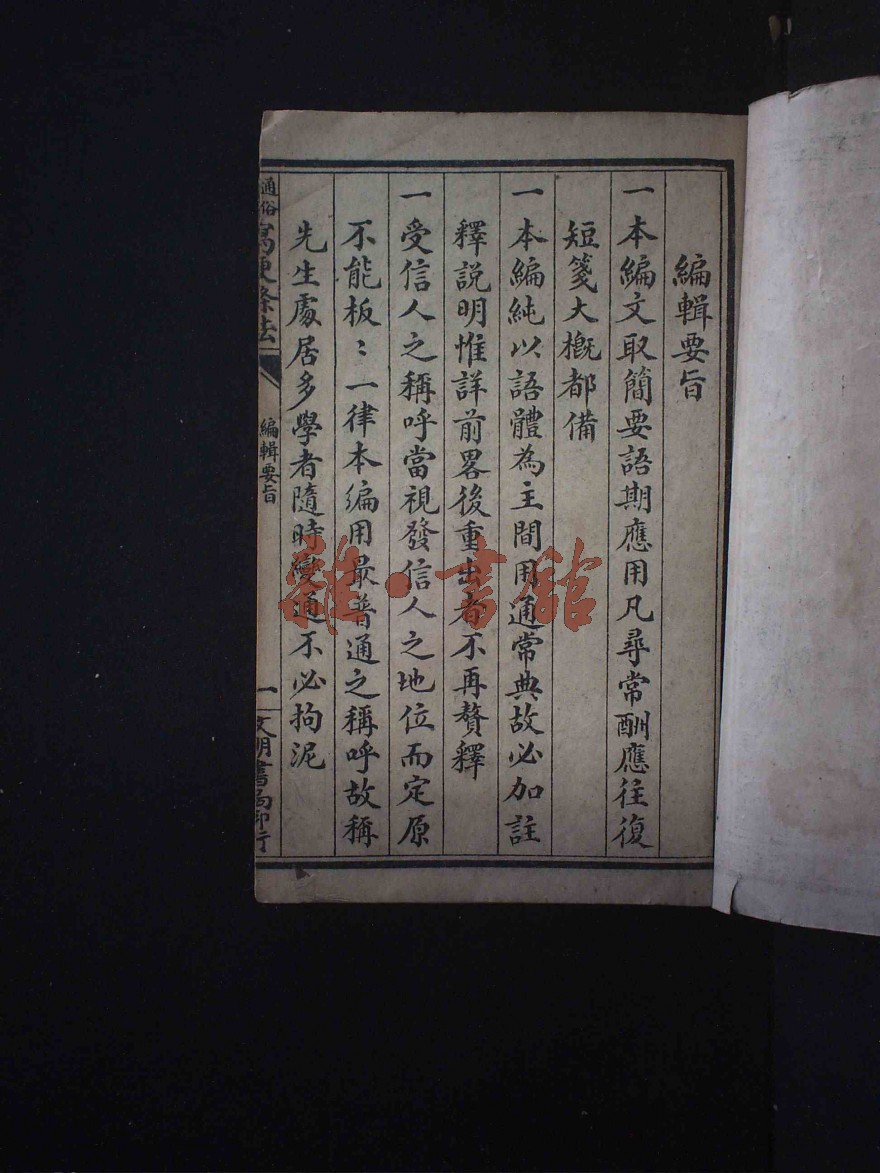 編輯要旨
一本編文取簡要語期應用凡尋常酬應往復
短箋大概都備
一本編純以語體為主間用通常典故必加註
釋説明惟詳前畧後重出者不再贅釋
一受信人之稱呼當視發信人之地位而定原
不能板〻一律本編用最普通之稱呼故稱
先生處居多學者隨時變通不必拘泥
通俗寫便條法
編輯要旨
一
文明書局印行
雜·書館